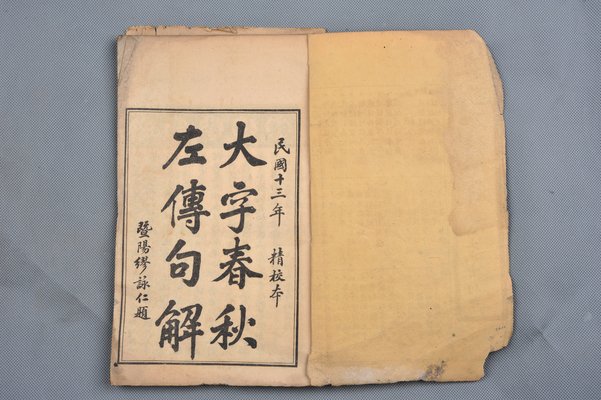 民國十三年 精校本
大字春秋
左傳句解
暨陽繆詠仁題